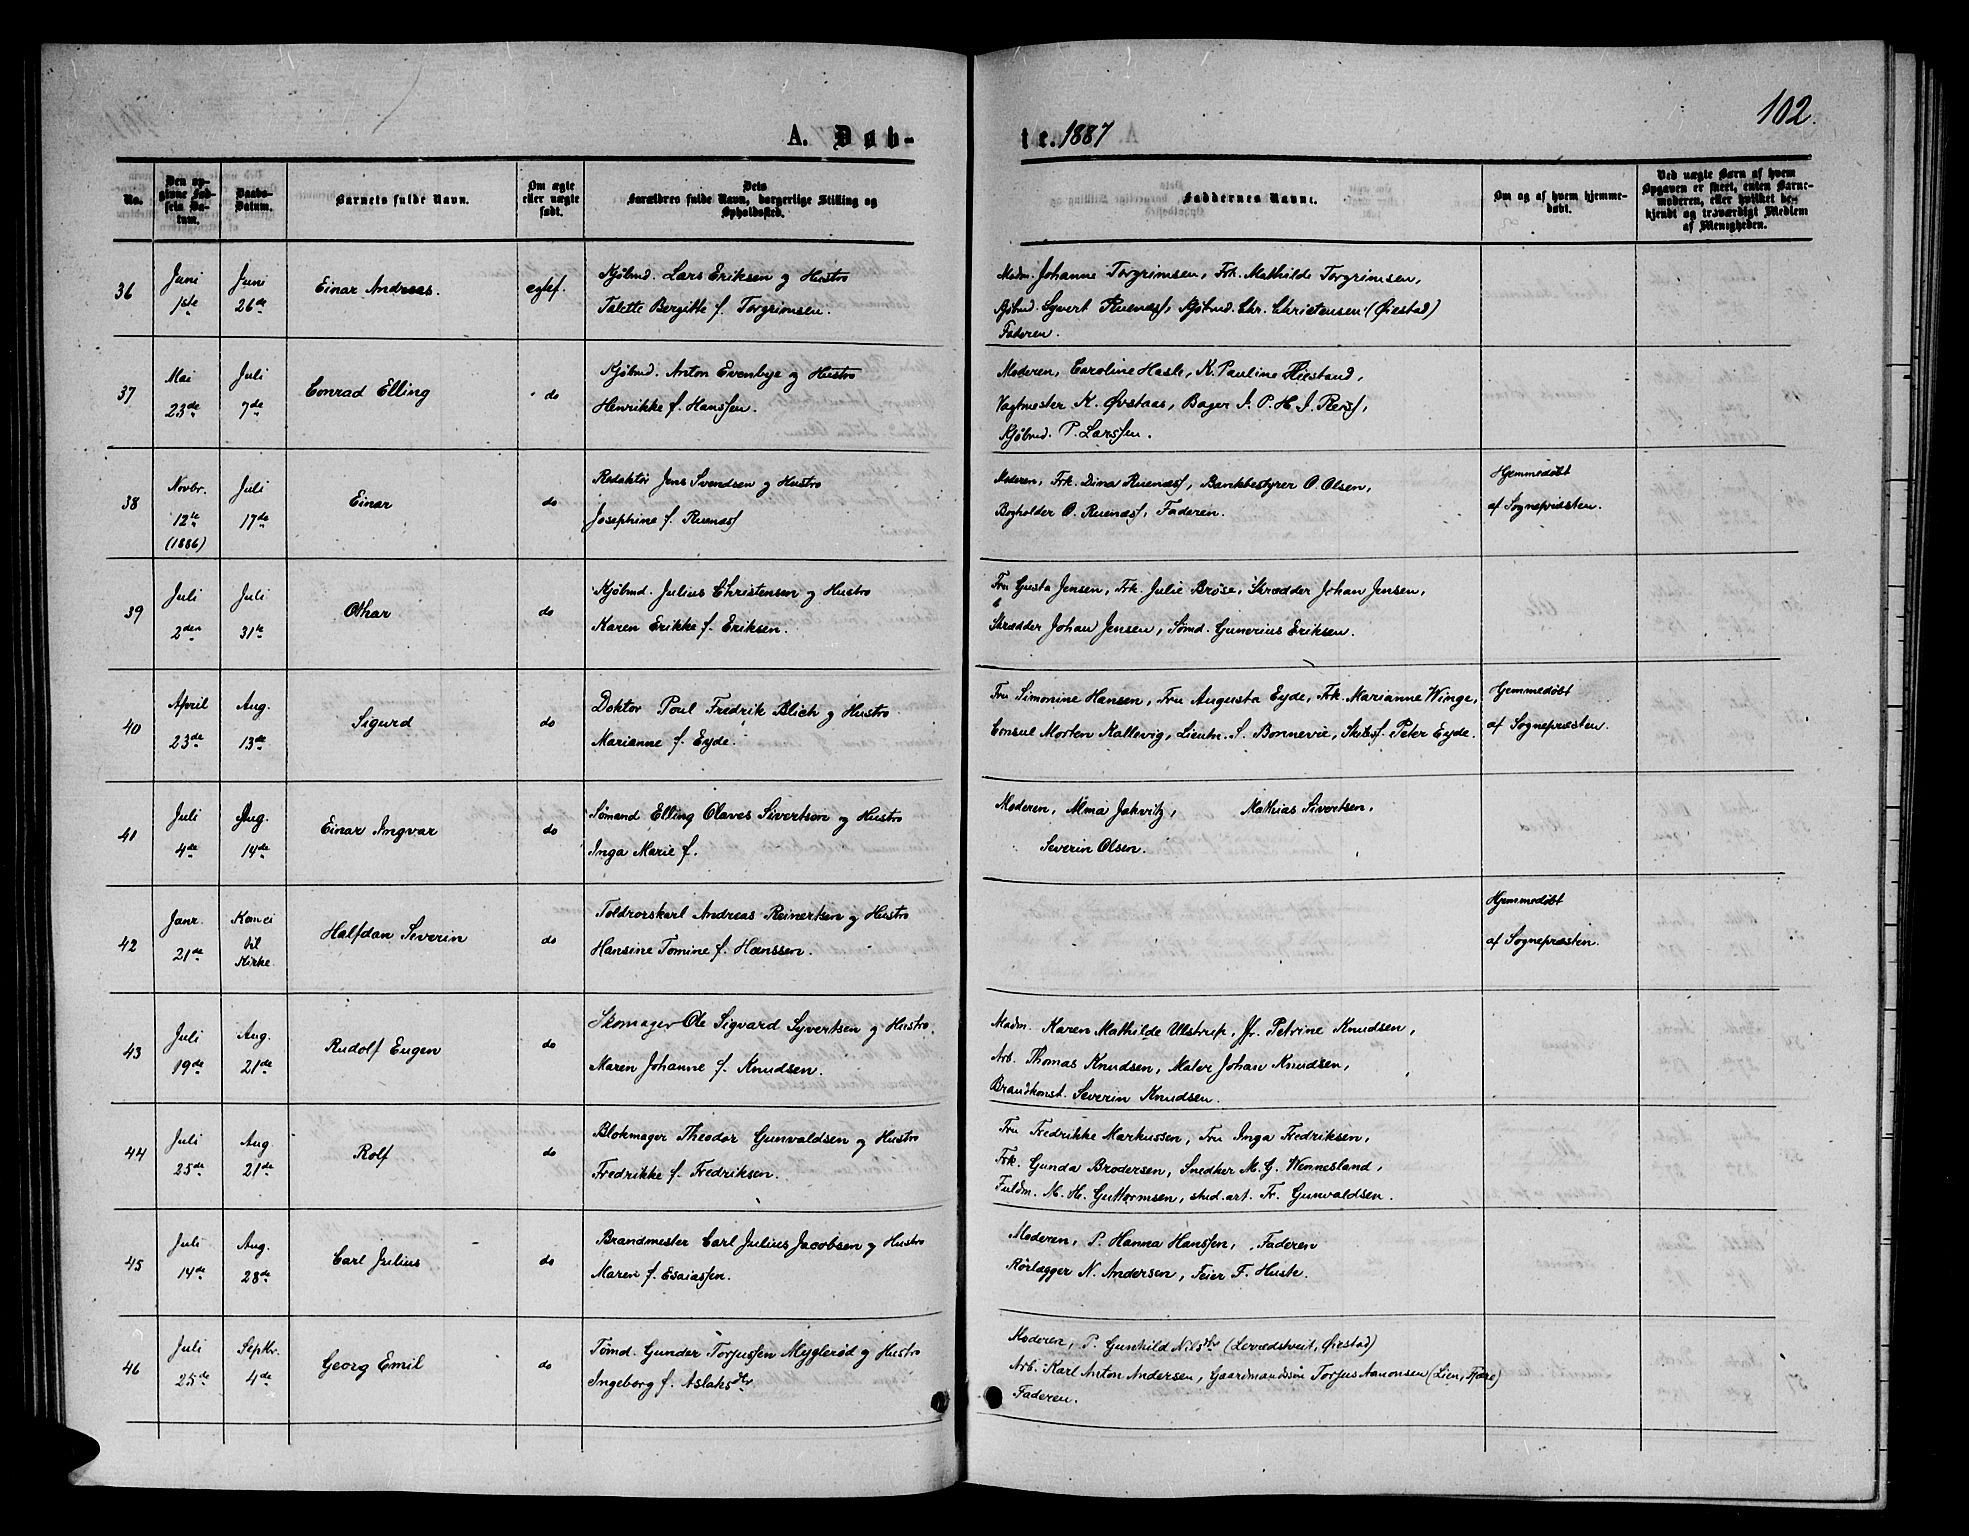 102.
A. Døb-
te. 1887
No.
Den op-
givne Fød-
sels Da-
tum.
Daabs-
Datum.
Barnets fulde Navn.
Om ægte
eller uægte
født.
Dets
Forældres fulde Navn, borgerlige Stilling og
Opholdssted.
Faddernes Navne.
Om og af hvem hjemme-
døbt.
Ved uægte Børn af hvem
Opgaven er skeet, enten Barne-
moderen, eller hvilket be-
kjendt og troværdigt Medlem
af Menigheden.
36
Juni
1ste
Juni
26de
Einar Andreas.
egtef.
Kjöbmd. Lars Eriksen og Hustro
Talette Bergitte f. Torgrimsen.
Madm. Johanne Torgrimsen, Frk. Mathilde Torgrimsen,
Kjöbmd. Syvert Ruenæs, Kjöbmd. Chr. Christensen (Øiestad)
Faderen.
37
Mai
23de
Juli
7de
Conrad Elling
do
Kjöbmd. Anton Evenbye og Hustro
Henrikke f. Hanssen.
Moderen, Caroline Hasle, K. Pauline Fiestand,
Vagtmester K. Øvstaas, Bager J. P. H. J. Rerss,
Kjöbmd. P. Larssen.
38
Novbr.
12te
(1886)
Juli
17de
Einar
do
Redaktör Jens Svendsen og Hustro
Josephine f. Ruenæs
Moderen, Frk. Dina Ruenæs, Bankbestyrer O. Olsen,
Bogholder O. Ruenæs, Faderen.
Hjemmedöbt
af Sognepræsten.
39
Juli
2den
Juli
31te
Othar
do
Kjöbmd. Julius Christensen og Hustro
Karen Erikke f. Eriksen.
Fru Gusta Jensen, Frk. Julie Bröse, Skrædder Johan Jensen,
Skrædder Johan Jensen, Sömd. Gunerius Eriksen.
40
April
23de
Aug.
13de
Sigurd
do
Doktor Poul Fredrik Blich og Hustro
Marianne f. Eyde.
Fru Simonine Hansen, Fru Augusta Eyde, Frk. Marianne Winge,
Consul Morten Kallevig, Lieutn. S. Bonnevie, Skibsf. Peter Eyde.
Hjemmedöbt
af Sognepræsten.
41
Juli
4de
Aug.
14de
Einar Ingvar
do
Sömand Elling Olaves Sivertsen og Hustro
Inga Marie f.
Moderen, Alma Jakvitz, Mathias Sivertsen,
Severin Olsen.
42
Janr.
21de
Kom ei
til
Kirke.
Halfdan Severin
do
Toldrorskarl Andreas Reinertsen og Hustro
Hansine Tomine f. Hanssen.
Hjemmedöbt
af Sognepræsten.
43
Juli
19de
Aug.
21de
Rudolf Eugen
do
Skomager Ole Sigvard Syvertsen og Hustro
Maren Johanne f. Knudsen.
Madm. Karen Mathilde Ulstrup, Jfr. Petrine Knudsen,
Arb. Thomas Knudsen, Maler Johan Knudsen,
Brandkonst. Severin Knudsen.
44
Juli
25de
Aug.
21de
Rolf
do
Blokmager Theodor Gunvaldsen og Hustro
Fredrikke f. Fredriksen.
Fru Fredrikke Markussen, Fru Inga Fredriksen,
Frk. Gunda Brodersen, Snedker M. G. Wennesland,
Fuldm. N. H. Guttormsen, stud. art. Fr. Gunvaldsen.
45
Juli
14de
Aug.
28de
Carl Julius
do
Brandmester Carl Julius Jacobsen og Hustro
Maren f. Esaiassen.
Moderen, P. Hanna Hanssen, Faderen
Rörlægger N. Andersen, Feier F. Huste.
46
Juli
25de
Septbr.
4de
Georg Emil
do
Tömd. Gunder Torjussen Myglerød og Hustro
Ingeborg f. Aslaksdtr
Moderen, P. Gunhild Nilsdtr (Lerrædstveit, Øiestad)
Arb. Karl Anton Andersen, Gaardmandssön Torjus Aanonsen (Lien, Fjære)
Faderen.